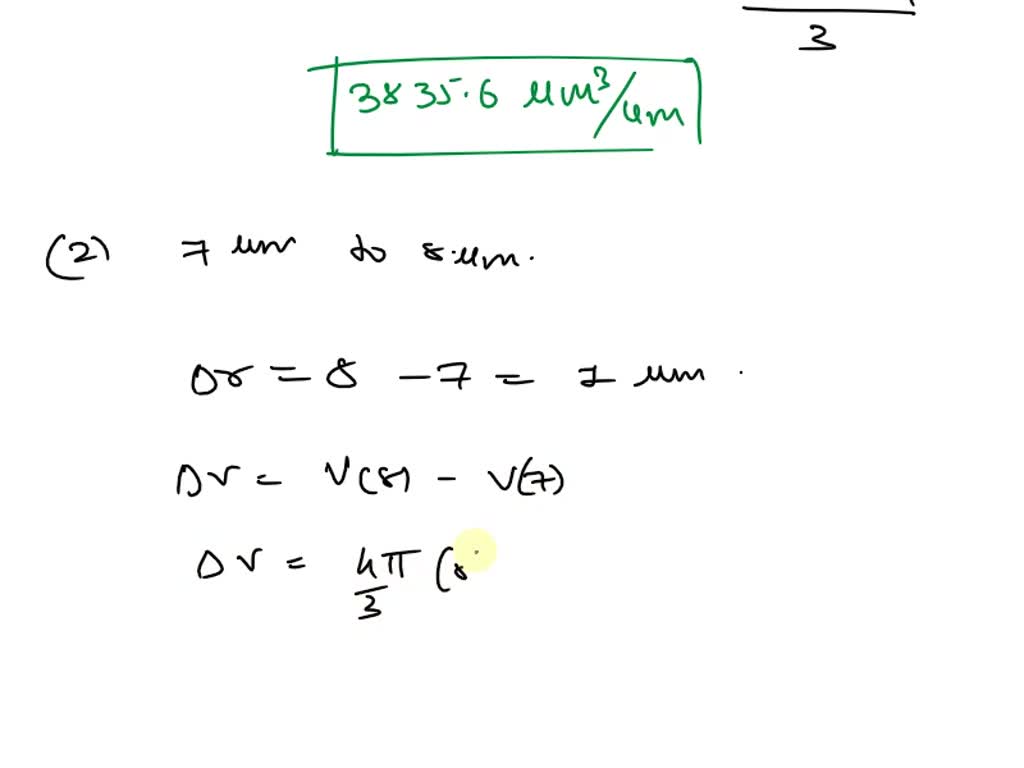 3
3835.6 μm³/μm
(2) 7 μm to 8 μm.
Δr = 8 - 7 = 1 μm.
ΔV = V(8) - V(7)
ΔV = 4π/3 (8